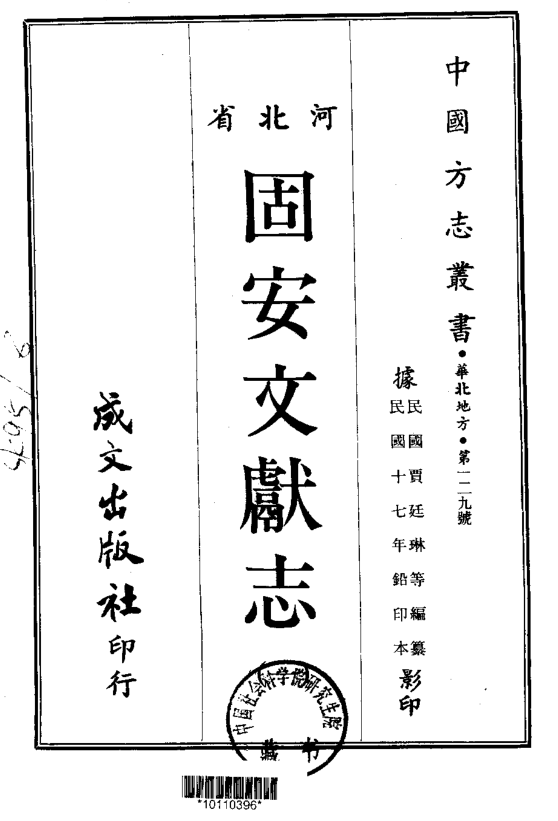 中國方志叢書•華北地方•第一一九號
據民國賈廷琳等編纂
民國十七年鉛印本影印
河北省
固安文獻志
成文出版社印行
中国社会科学院研究生院
藏书
*10110396*